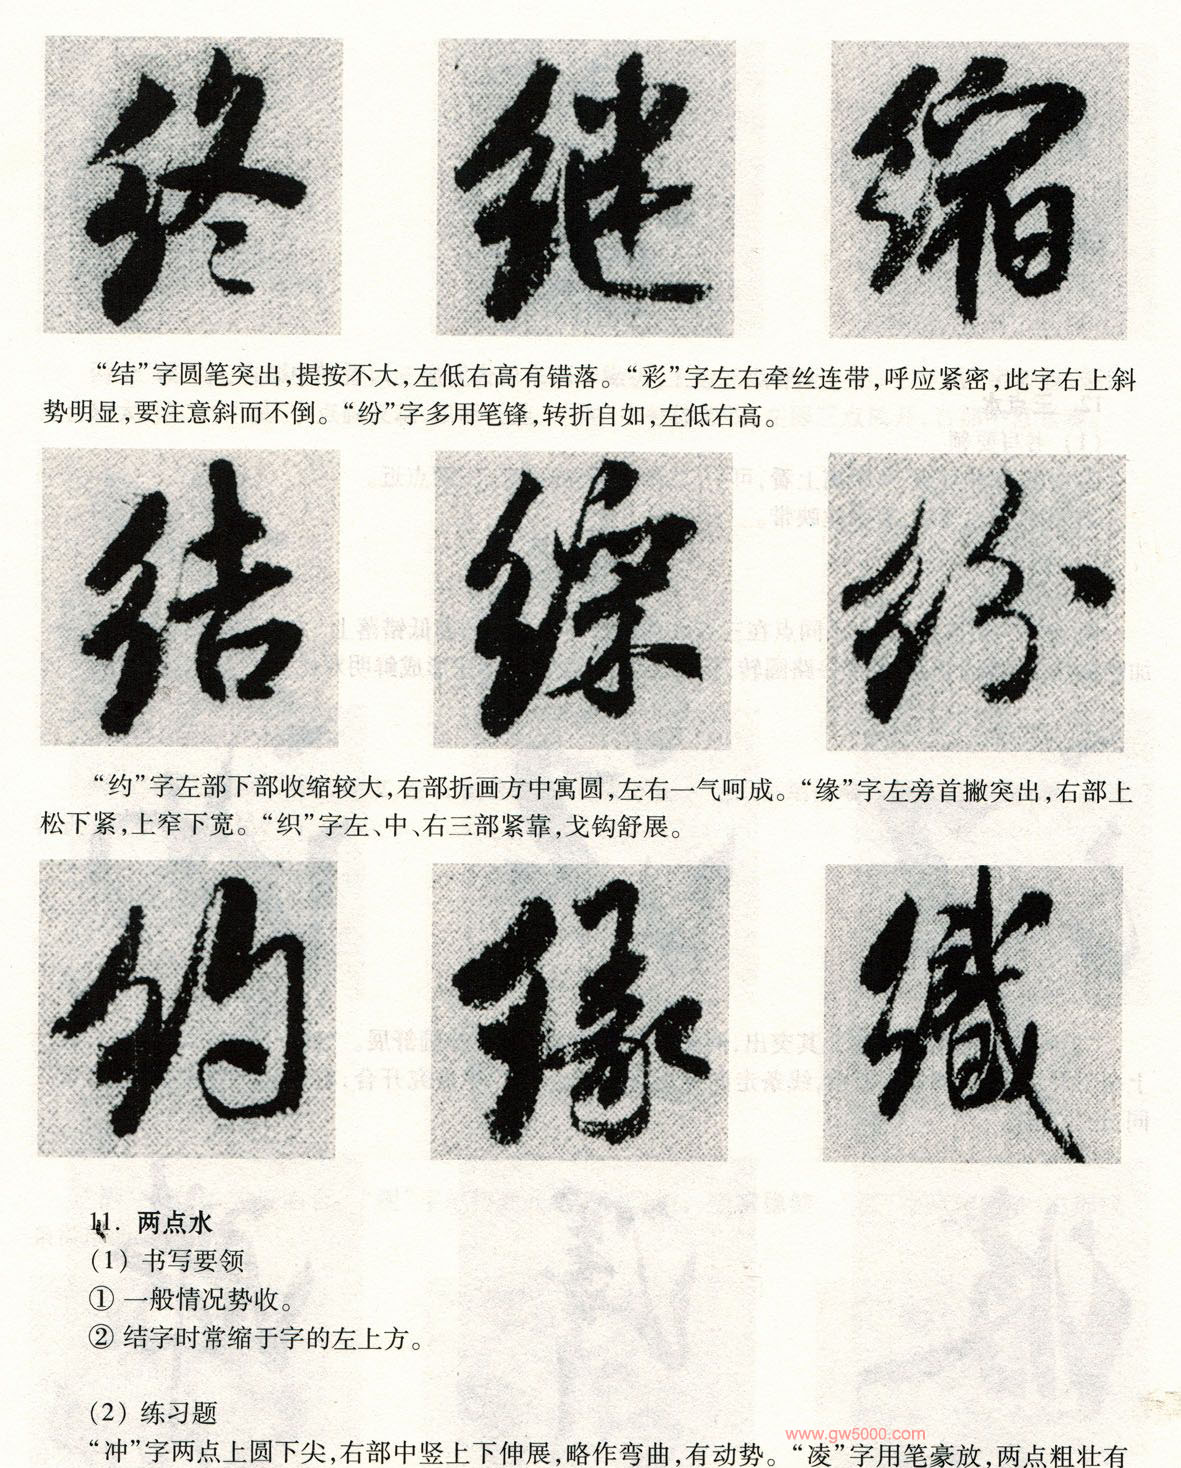 终 继 缩
“结”字圆笔突出,提按不大,左低右高有错落。“彩”字左右牵丝连带,呼应紧密,此字右上斜
势明显,要注意斜而不倒。“纷”字多用笔锋,转折自如,左低右高。
结 䌽 纷
“约”字左部下部收缩较大,右部折画方中寓圆,左右一气呵成。“缘”字左旁首撇突出,右部上
松下紧,上窄下宽。“织”字左、中、右三部紧靠,戈钩舒展。
约 缘 织
11. 两点水
(1) 书写要领
① 一般情况势收。
② 结字时常缩于字的左上方。
(2) 练习题
“冲”字两点上圆下尖,右部中竖上下伸展,略作弯曲,有动势。“凌”字用笔豪放,两点粗壮有
www.gw5000.com